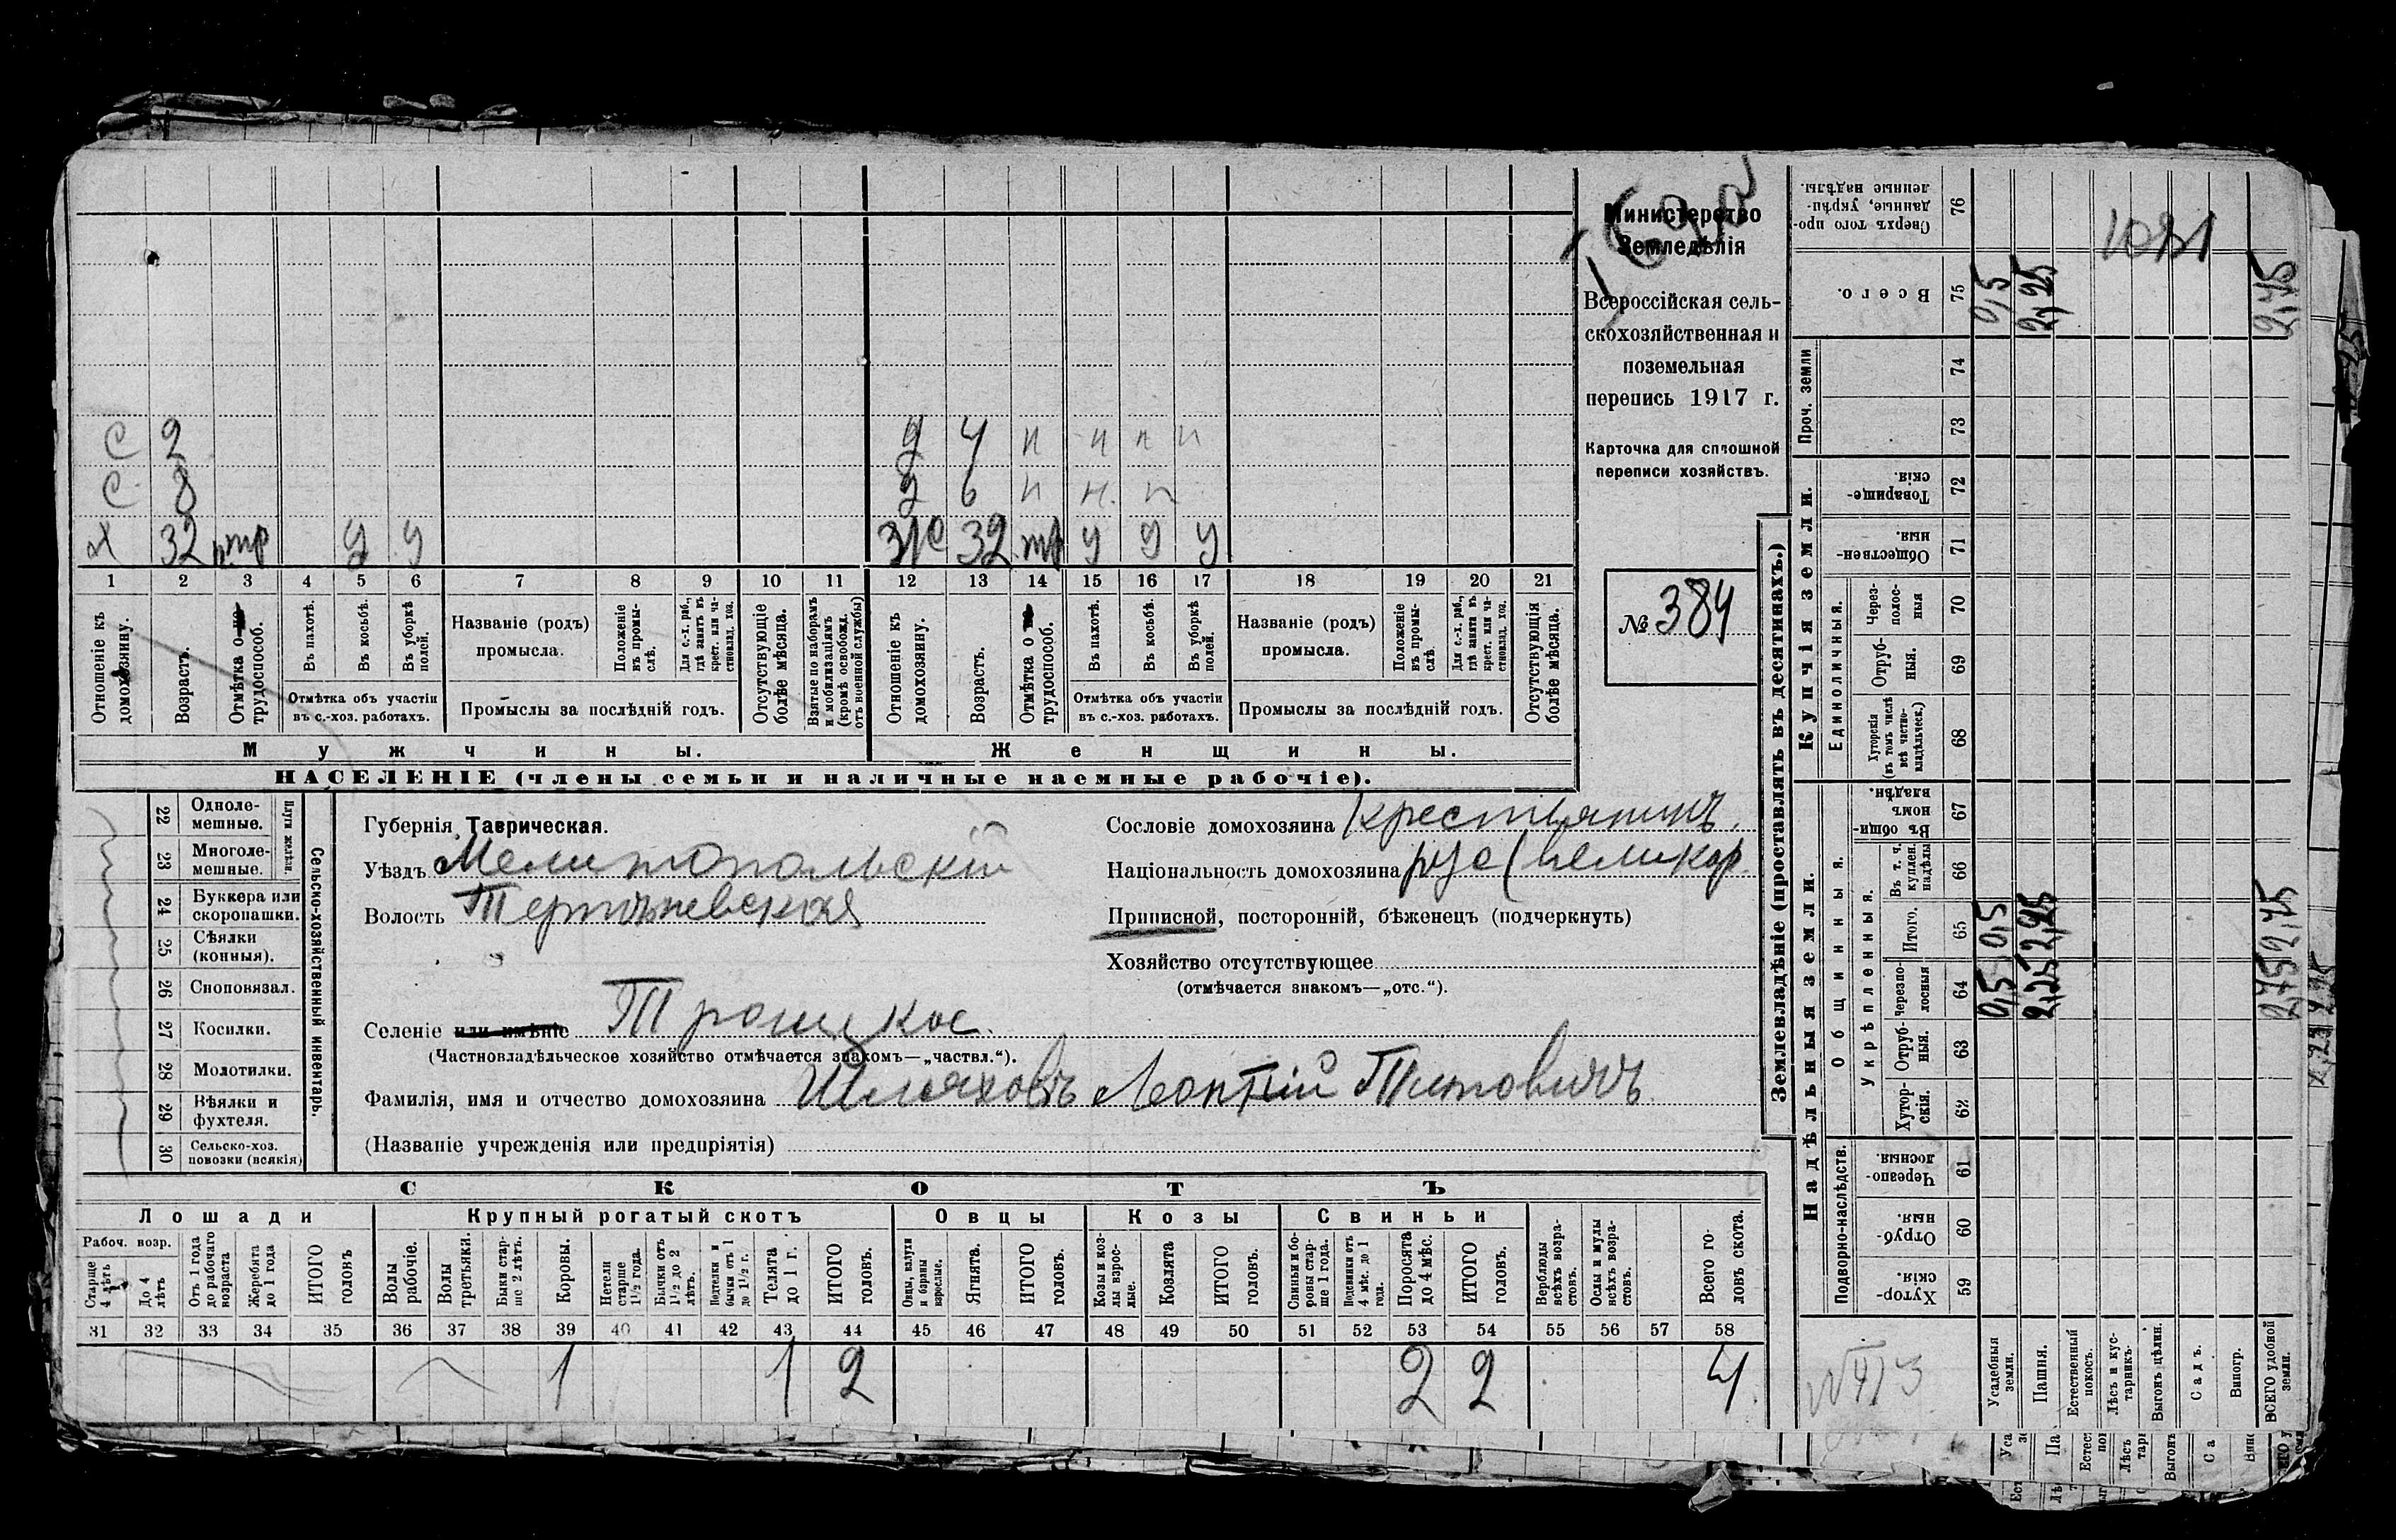 Министерство
Земледѣлія
Всероссійская сель-
скохозяйственная и
поземельная
перепись 1917 г.
Карточка для сплошной
переписи хозяйствъ.
№ 384
С 2
С 8
Х 32 тр у у
д 4 н н н н
д 6 н н. н
32 тр у у у
1 2 3 4 5 6 7 8 9 10 11 12 13 14 15 16 17 18 19 20 21
Отношеніе къ домохозяину.
Возрастъ.
Отмѣтка о трудоспособ.
Въ пахотѣ.
Въ косьбѣ.
Въ уборкѣ полей.
Отмѣтка объ участіи
въ с.-хоз. работахъ.
Названіе (родъ)
промысла.
Положеніе въ промы-слѣ.
Для с.-х. раб., гдѣ занятъ въ крест. или ча-стновлад. хоз.
Промыслы за послѣдній годъ.
Отсутствующіе болѣе мѣсяца.
Взятые по наборамъ и мобилизаціямъ (кромѣ освобожд. отъ военной службы)
Отношеніе къ домохозяину.
Возрастъ.
Отмѣтка о трудоспособ.
Въ пахотѣ.
Въ косьбѣ.
Въ уборкѣ полей.
Отмѣтка объ участіи
въ с.-хоз. работахъ.
Названіе (родъ)
промысла.
Положеніе въ промы-слѣ.
Для с.-х. раб., гдѣ занята въ крест. или ча-стновлад. хоз.
Промыслы за послѣдній годъ.
Отсутствующія болѣе мѣсяца.
Мужчины.
Женщины.
НАСЕЛЕНІЕ (члены семьи и наличные наемные рабочіе).
22 Одноле-мешные.
23 Многоле-мешные.
Плуги желѣзн.
24 Буккера или скоропашки.
25 Сѣялки (конныя).
26 Сноповязал.
27 Косилки.
28 Молотилки.
29 Вѣялки и фухтеля.
30 Сельско-хоз. повозки (всякія)
Сельско-хозяйственный инвентарь.
Губернія Таврическая.
Уѣздъ Мелитопольскій
Волость
Селеніе или имѣніе Троицкое.
(Частновладѣльческое хозяйство отмѣчается знакомъ—„частвл.“).
Фамилія, имя и отчество домохозяина Шляховъ Леонтій Титовичъ
(Названіе учрежденія или предпріятія)
Сословіе домохозяина крестьянинъ.
Національность домохозяина рус (великор.
Приписной, посторонній, бѣженецъ (подчеркнуть)
Хозяйство отсутствующее
(отмѣчается знакомъ—„отс.“).
СКОТЪ
Лошади
Крупный рогатый скотъ
Овцы
Козы
Свиньи
Рабоч. возр.
Старше 4 лѣтъ
До 4 лѣтъ
Отъ 1 года до рабочаго возраста
Жеребята до 1 года
ИТОГО головъ
Волы рабочіе.
Волы третьяки.
Быки стар-ше 2 лѣтъ.
Коровы.
Нетели старше 1½ года.
Бычки отъ 1½ до 2 лѣтъ.
Подтелки и бычки отъ 1 до 1½ г.
Телята до 1 г.
ИТОГО головъ.
Овцы, валухи и бараны взрослые.
Ягнята.
ИТОГО головъ.
Козы и коз-лы взрос-лые.
Козлята
ИТОГО головъ.
Свиньи и бо-ровы стар-ше 1 года.
Подсвинки отъ 4 мѣс. до 1 года.
Поросята до 4 мѣс.
ИТОГО головъ.
Верблюды всѣхъ возра-стовъ.
Ослы и мулы всѣхъ возра-стовъ.
Всего го-ловъ скота.
31 32 33 34 35 36 37 38 39 40 41 42 43 44 45 46 47 48 49 50 51 52 53 54 55 56 57 58
1 1 2 2 2 4
Землевладѣніе (проставлять въ десятинахъ.)
Купчія земли.
Надѣльныя земли.
Сверхъ того про-данные, укрѣп-ленные надѣлы. 76
Всего. 75 0,5 2,25 2,75
Проч. земли 74 73
Товарище-скія. 72
Обществен-ныя. 71
Единоличныя.
Черес-полос-ныя 70
Отруб-ныя. 69
Хуторскія (въ томъ числѣ всѣ частно-владѣльческ.) 68
Въ общи-номъ владѣн. 67
Общинныя.
Укрѣпленныя.
Въ т. ч. куплен. надѣлы 66
Итого. 65 0,5 2,25 2,75
Черезпо-лосныя 64 0,5 2,25 2,75
Отруб-ныя. 63
Хутор-скія. 62
Подворно-наслѣдств.
Черезпо-лосныя. 61
Отруб-ныя. 60
Хутор-скія. 59
Усадебныя земли.
Пашня.
Естественный покосъ.
Лѣсъ и кус-тарникъ.
Выгонъ цѣлин.
Садъ.
Виногр.
ВСЕГО удобной земли.